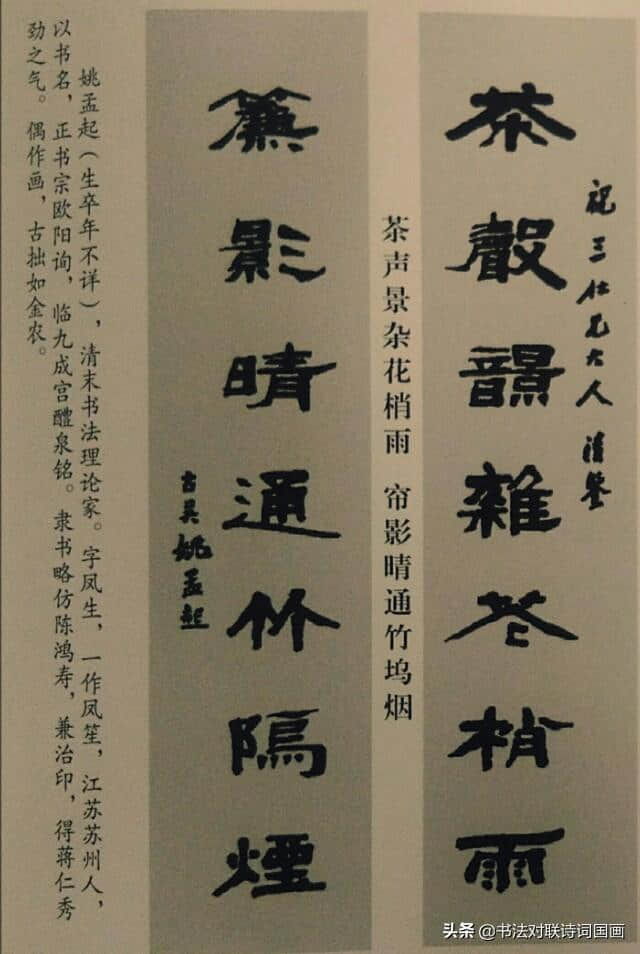 祝三仁兄大人 清鑒
茶聲雜花梢雨
茶声景杂花梢雨 帘影晴通竹坞烟
簾影晴通竹隖煙
古吴姚孟起
姚孟起（生卒年不详），清末书法理论家。字凤生，一作凤笙，江苏苏州人，
以书名，正书宗欧阳询，临九成宫醴泉铭。隶书略仿陈鸿寿，兼治印，得蒋仁秀
劲之气。偶作画，古拙如金农。
头条 @书法对联诗词国画